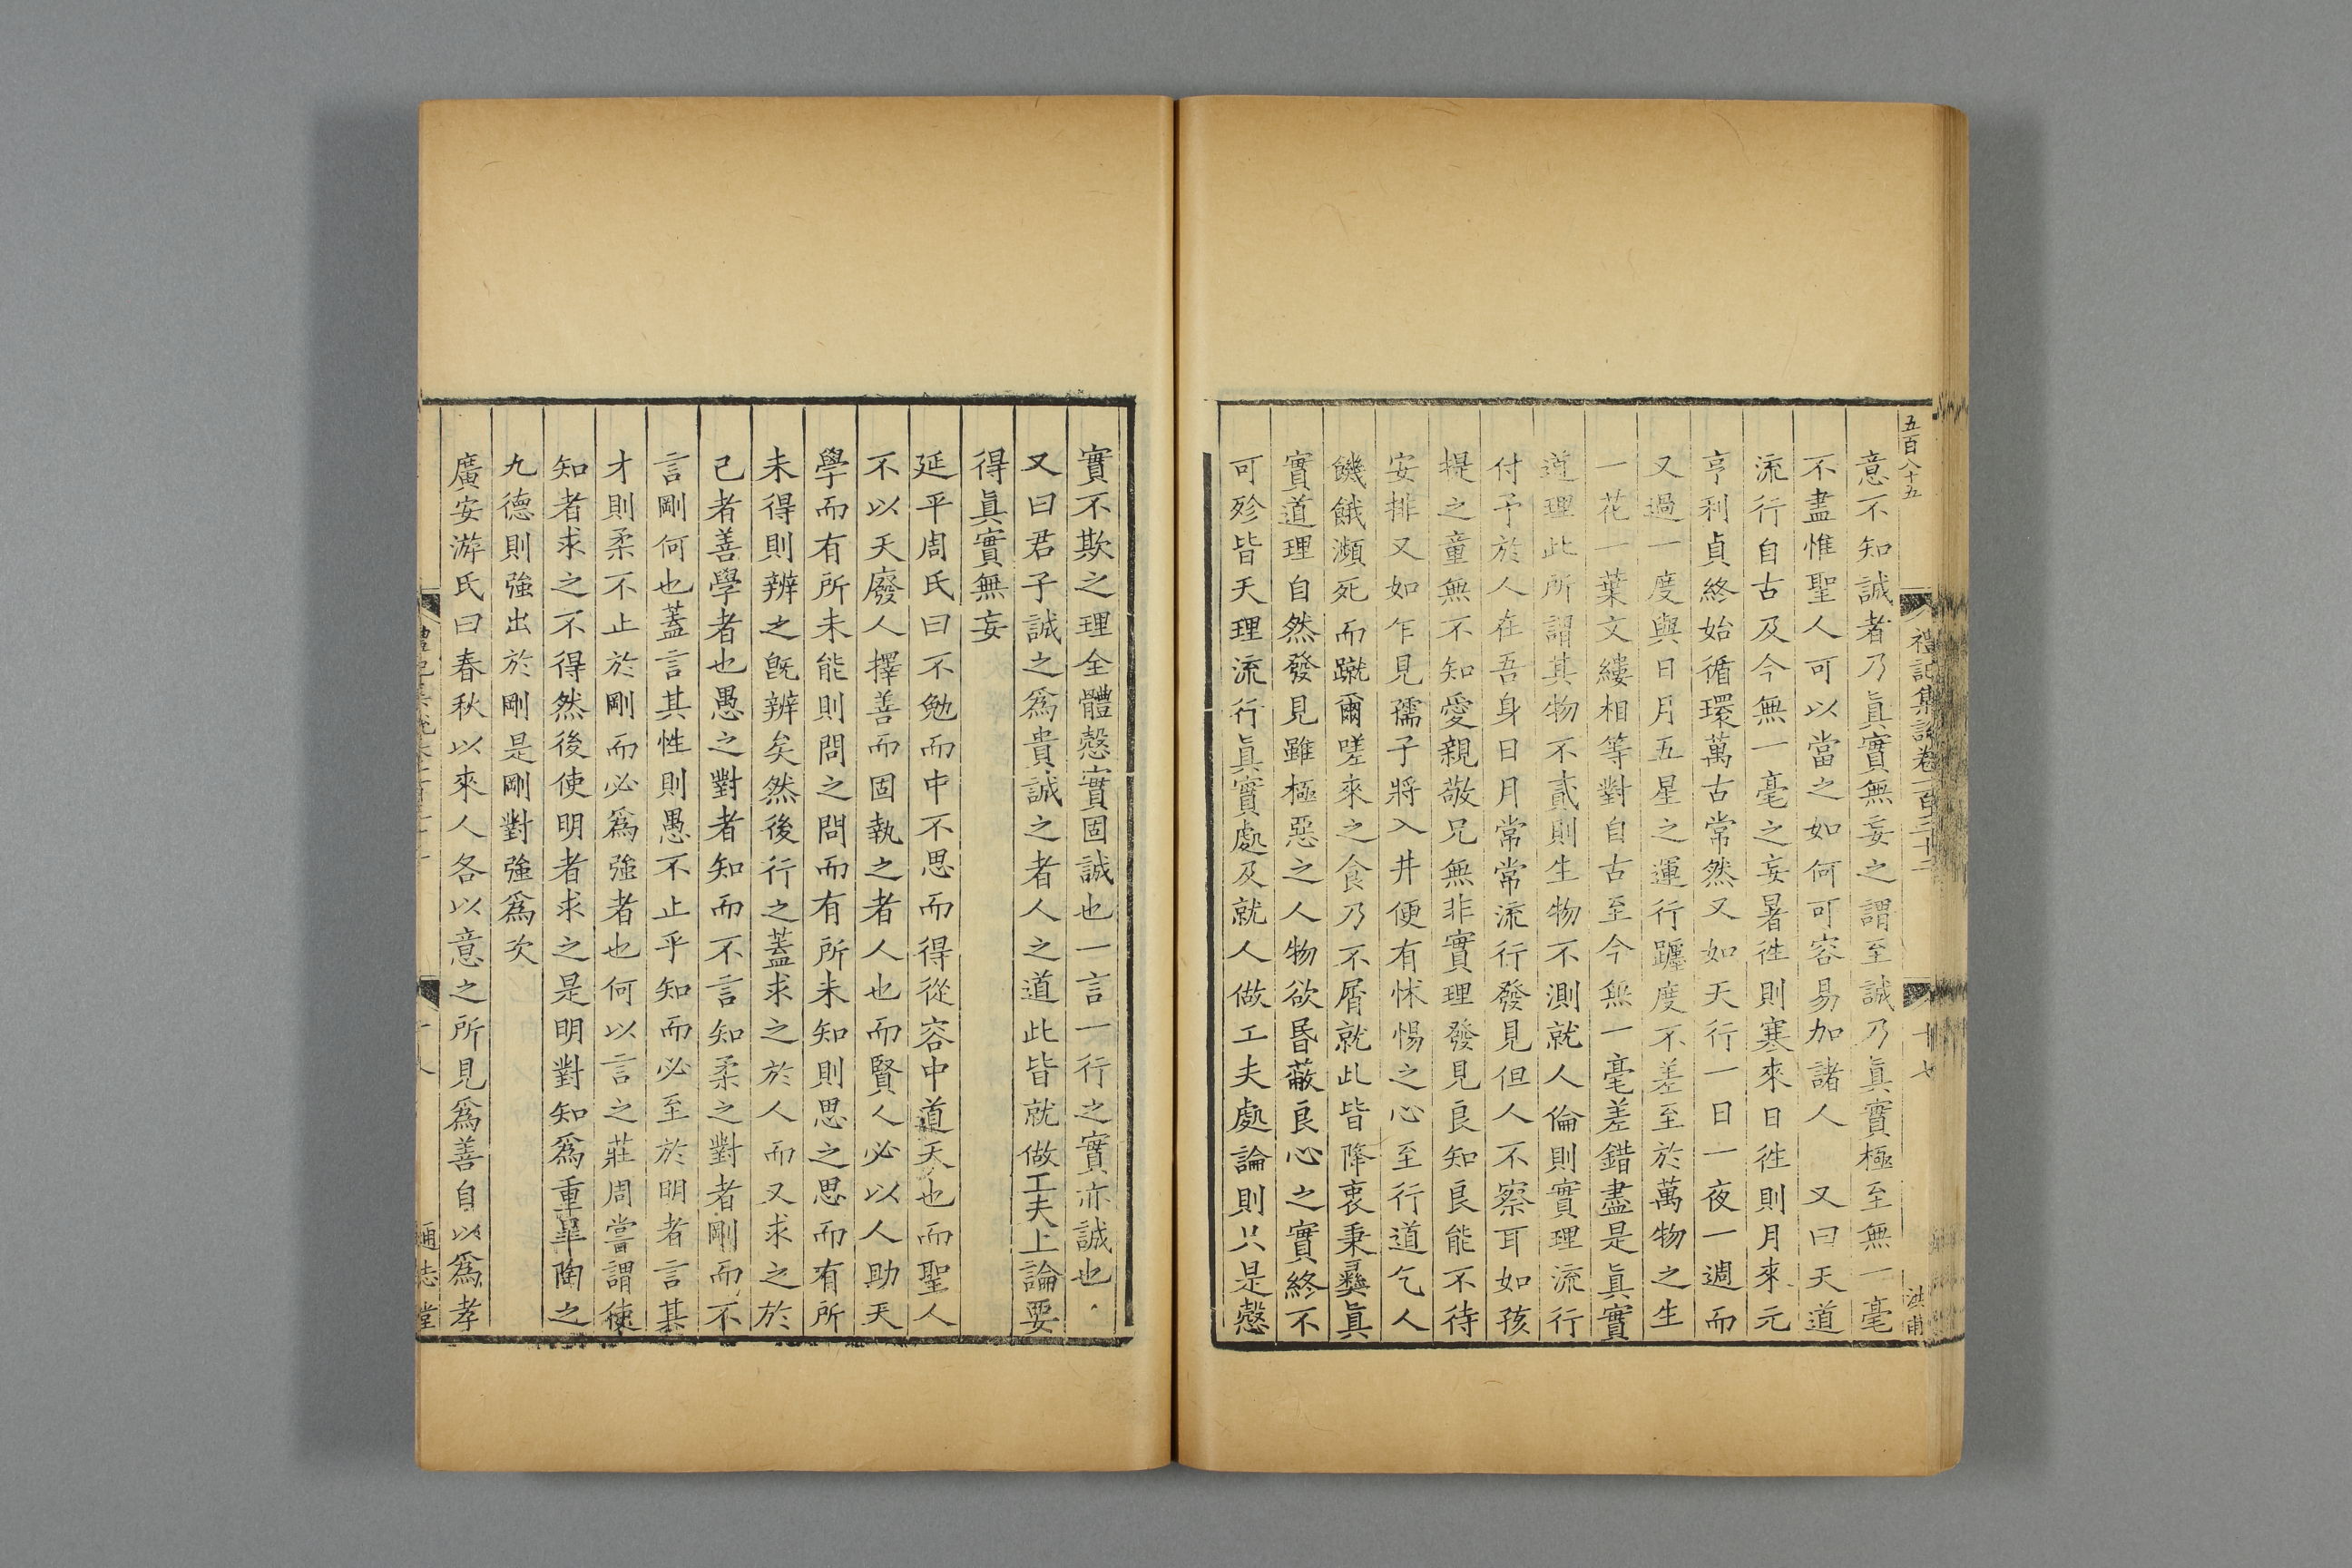 五百八十五
禮記集說卷一百三十三
十七
洪甫
意不知誠者乃眞實無妄之謂至誠乃眞實極至無一毫
不盡惟聖人可以當之如何可容易加諸人　又曰天道
流行自古及今無一毫之妄暑徃則寒來日徃則月來元
亨利貞終始循環萬古常然又如天行一日一夜一週而
又過一度與日月五星之運行躔度不差至於萬物之生
一花一葉文縷相等對自古至今無一毫差錯盡是眞實
道理此所謂其物不貳則生物不測就人倫則實理流行
付予於人在吾身日月常常流行發見但人不察耳如孩
提之童無不知愛親敬兄無非實理發見良知良能不待
安排又如乍見孺子將入井便有怵惕之心至行道乞人
饑餓瀕死而蹴爾嗟來之食乃不屑就此皆降衷秉彝眞
實道理自然發見雖極惡之人物欲昬蔽良心之實終不
可殄皆天理流行眞實處及就人做工夫處論則只是慤
實不欺之理全體慤實固誠也一言一行之實亦誠也
又曰君子誠之爲貴誠之者人之道此皆就做工夫上論要
得眞實無妄
延平周氏曰不勉而中不思而得從容中道天也而聖人
不以天廢人擇善而固執之者人也而賢人必以人助天
學而有所未能則問之問而有所未知則思之思而有所
未得則辨之旣辨矣然後行之蓋求之於人而又求之於
己者善學者也愚之對者知而不言知柔之對者剛而不
言剛何也蓋言其性則愚不止乎知而必至於明者言其
才則柔不止於剛而必爲強者也何以言之莊周嘗謂使
知者求之不得然後使明者求之是明對知爲重皐陶之
九德則強出於剛是剛對強爲次
廣安游氏曰春秋以來人各以意之所見爲善自以爲孝
通志堂